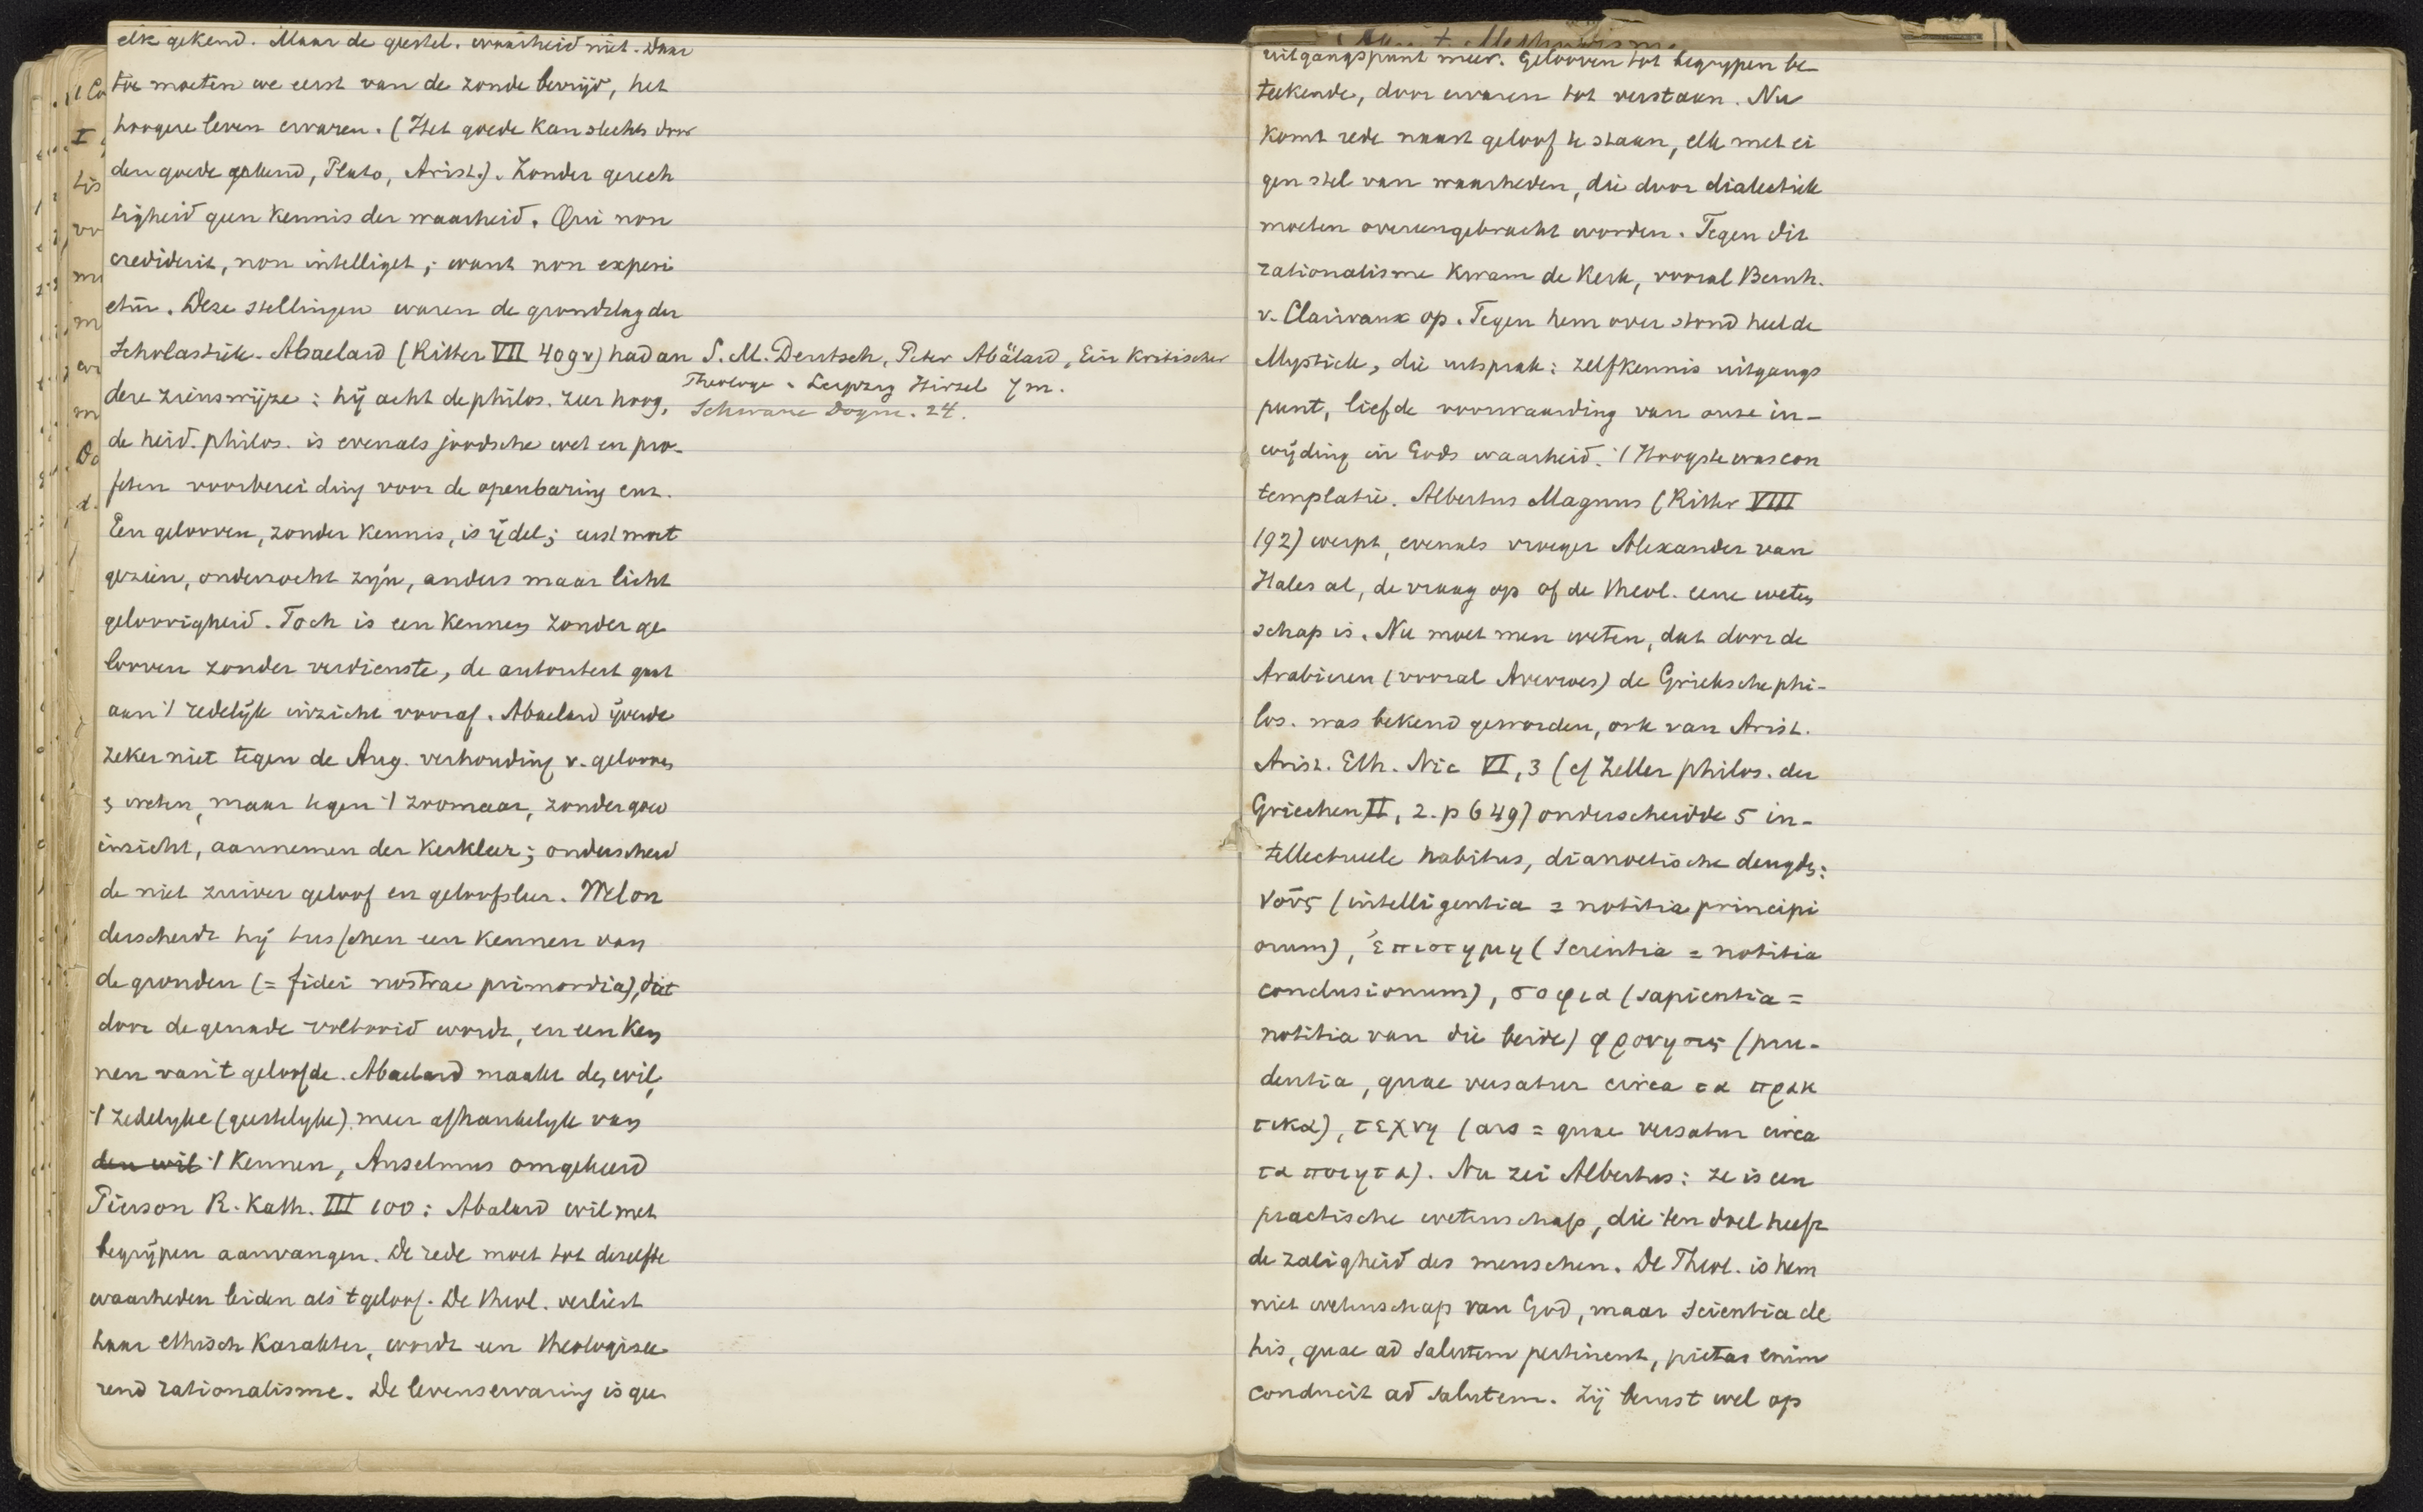 elk gekend. Maar de geestel. waarheid niet. Daar
toe moeten we eerst van de zonde bevrijd, het
hoogere leven ervaren. (Het goede kan slechts door
den goede gekend, Plato, Arist.). Zonder gerech
tigheid geen kennis der waarheid. Qui non
crediderit, non intelliget; want non experi
etur. Deze stellingen waren de grondslag der
Scholastiek. Abaelard (Ritter VII 409v) had an
dere zienswijze: hij acht de philos. zeer hoog,
de heid. philos. is evenals joodsche wet en pro-
feten voorbereiding voor de openbaring enz.
Een gelooven, zonder kennis, is ijdel; eerst moet
gezien, onderzocht zijn, anders maar licht
geloovigheid. Toch is een kennen zonder ge
looven zonder verdienste, de autoriteit gaat
aan 't redelijk inzicht vooraf. Abaelard ijverde
zeker niet tegen de Aug. verhouding v. gelooven
& weten, maar tegen 't zoomaar, zonder goed
inzicht, aannemen der kerkleer; onderscheid
de niet zuiver geloof en geloofsleer. Wel on
derscheidt hij tusschen een kennen van
de gronden (= fidei nostrae primordia), dat
door de genade voltooid wordt, en een ken
nen van 't geloofde. Abaelard maakt den wil,
't zedelyke (geestelyke) meer afhankelyk van
den wil 't kennen, Anselmus omgekeerd
Pierson R. Kath. III 100: Abalard wil met
begrijpen aanvangen. De rede moet tot dezelfde
waarheden leiden als 't geloof. De theol. verliest
haar ethisch karakter, wordt een theologisee
rend rationalisme. De levenservaring is geen
S. M. Deutsch, Peter Abälard, Ein kritischer
Theologe. Leipzig Hirzel 7 m.
Schwane Dogm. 24.
uitgangspunt meer. Gelooven tot begrypen be-
teekende, door ervaren tot verstaan. Nu
komt rede naast geloof te staan, elk met ei
gen stel van waarheden, die door dialectiek
moeten overeengebracht worden. Tegen dit
rationalisme kwam de Kerk, vooral Bernh.
v. Clairvaux op. Tegen hem over stond heel de
Mystiek, die uitsprak: zelfkennis uitgangs
punt, liefde voorwaarding van onze in-
wijding in Gods waarheid. 't Hoogste was con
templatie. Albertus Magnus (Ritter VIII
192) werpt, evenals vroeger Alexander van
Hales al, de vraag op of de theol. eene weten
schap is. Nu moet men weten, dat door de
Arabieren (vooral Averroes) de Grieksche phi-
los. was bekend geworden, ook van Arist.
Arist. Eth. Nic VI, 3 (cf Zeller philos. der
Griechen II, 2. p 649) onderscheidde 5 in-
tellectueele habitus, dianoetische deugden:
νοῦς (intelligentia = notitia principi
orum), ἐπιστημη (scientia = notitia
conclusionum), σοφια (sapientia =
notitia van die beide) φρονησις (pru-
dentia, quae versatur circa τα πρακ
τικα), τεχνη (ars = quae versatur circa
τα ποιητα). Nu zei Albertus: ze is een
practische wetenschap, die ten doel heeft
de zaligheid des menschen. De Theol. is hem
niet wetenschap van God, maar scientia de
his, quae ad salutem pertinent, pietas enim
conducit ad salutem. Zij berust wel op